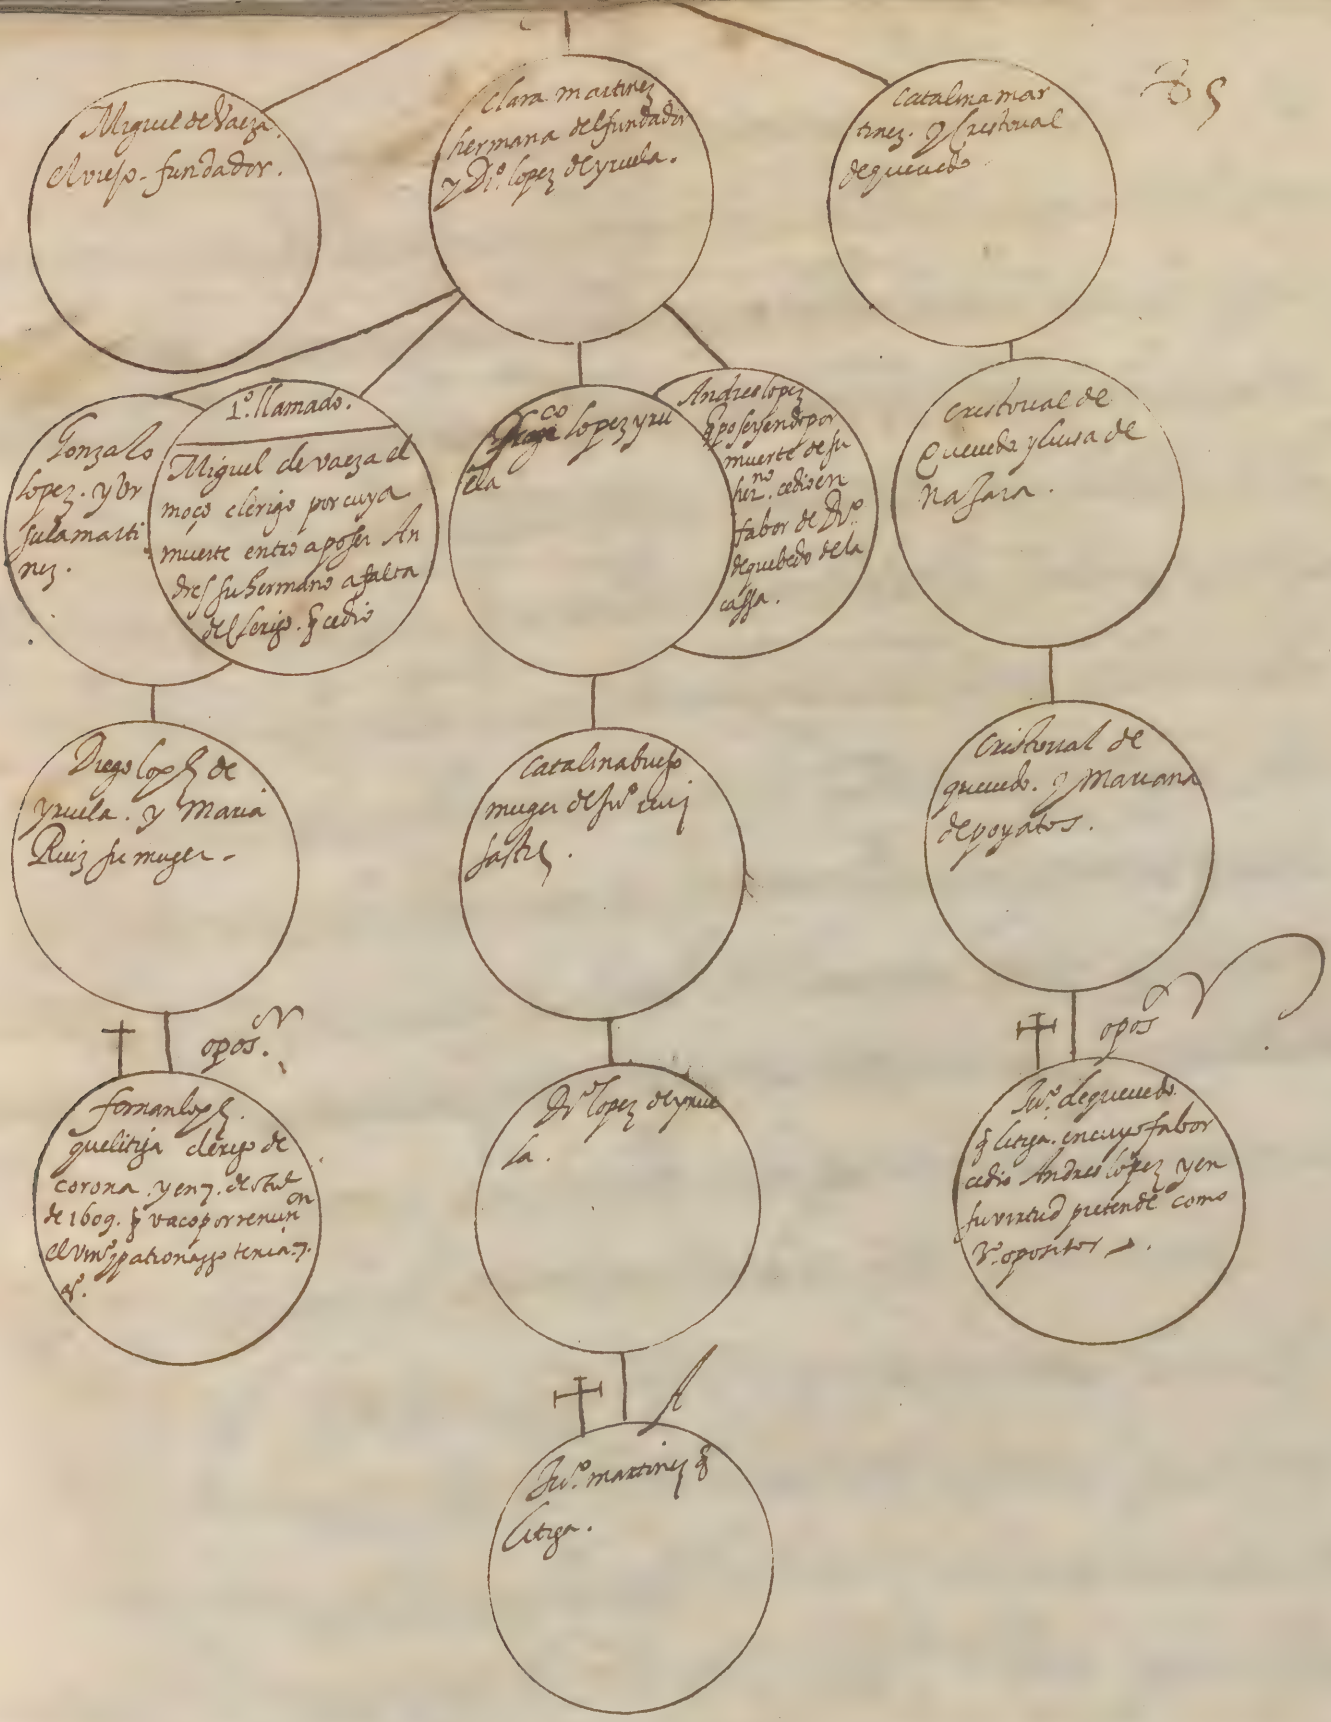 85
Miguel de Vaeza
el viejo - fundador.
Clara martinez
hermana del fundador
y Dio. lopez de yruela.
Catalina mar
tinez. y Cristoual
de queuedo
Gonzalo
lopez. y Vr
sula marti
nez.
1o. llamado.
Miguel de vaeza el
moço clerigo por cuya
muerte entro a poseer An
dres su hermano a falta
del clerigo. q cedio
co
lopez yru
ela
Andres lopez
q poseyendo por
muerte de su
herno. cedio en
fabor de
de quebedo de la
cassa.
Cristoual de
Queuedo y luisa de
Najara.
Diego lopz de
yruela. y Maria
Ruiz su muger -
Catalina buejo
muger de Juo ruiz
sastre.
Cristoual de
queuedo. y Mariana
de poyatos.
opos.or
opos.or
fernan lopz.
que litiga clerigo de
corona. y en 7. de
de 1609. q vaco por renunon
el patronazgo tenia. 7.
Do lopez de yrue
la.
Juo. de queuedo
q litiga. en cuyo fabor
cedio Andres lopez y en
su virtud pretende como
opositor
Juo. martinez q
litiga.